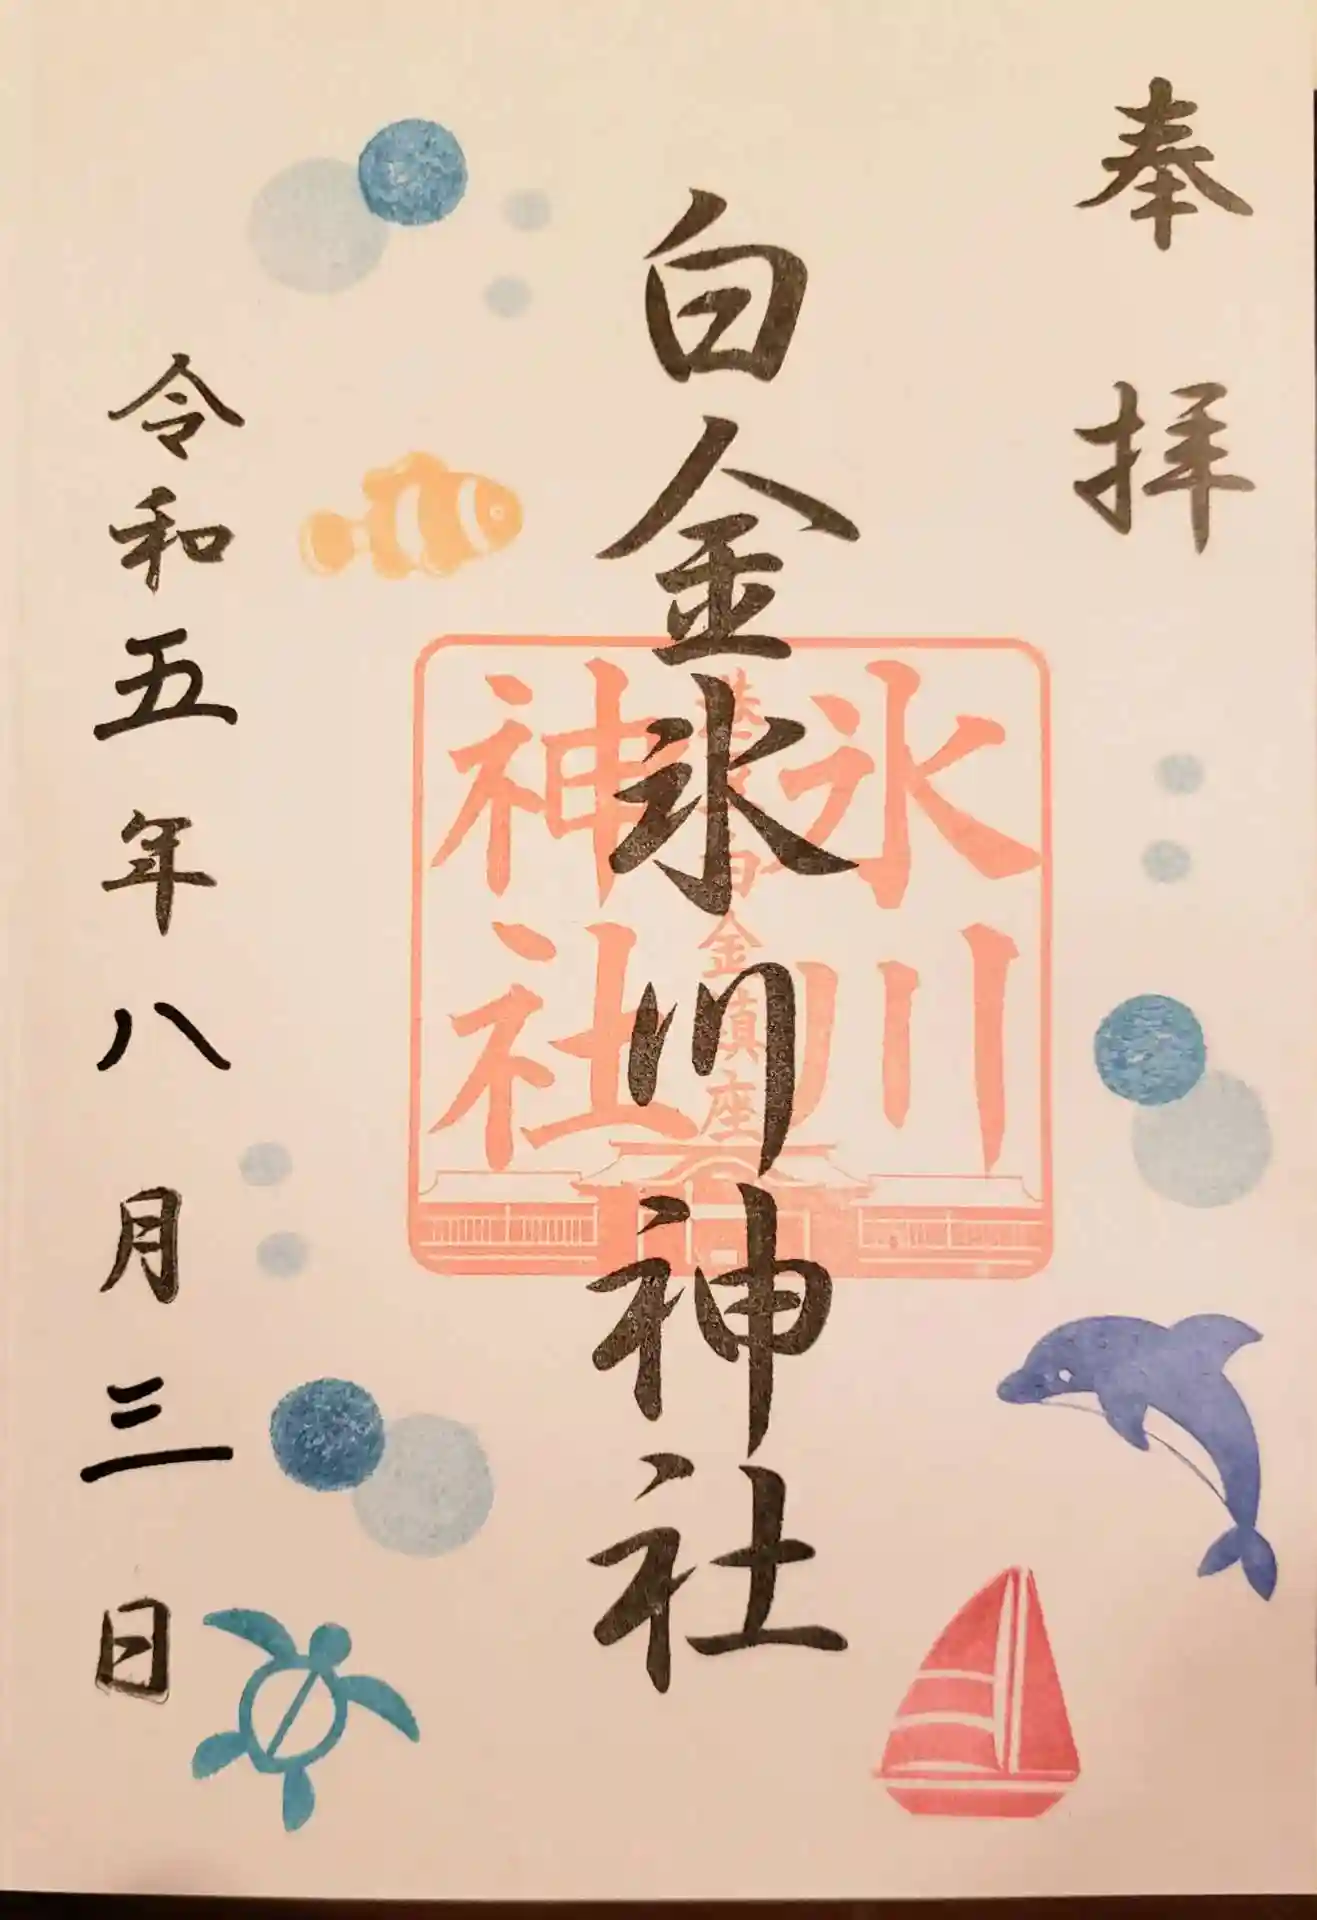 奉拝
白金氷川神社
氷川
港区白金鎮座
神社
令和五年八月三日